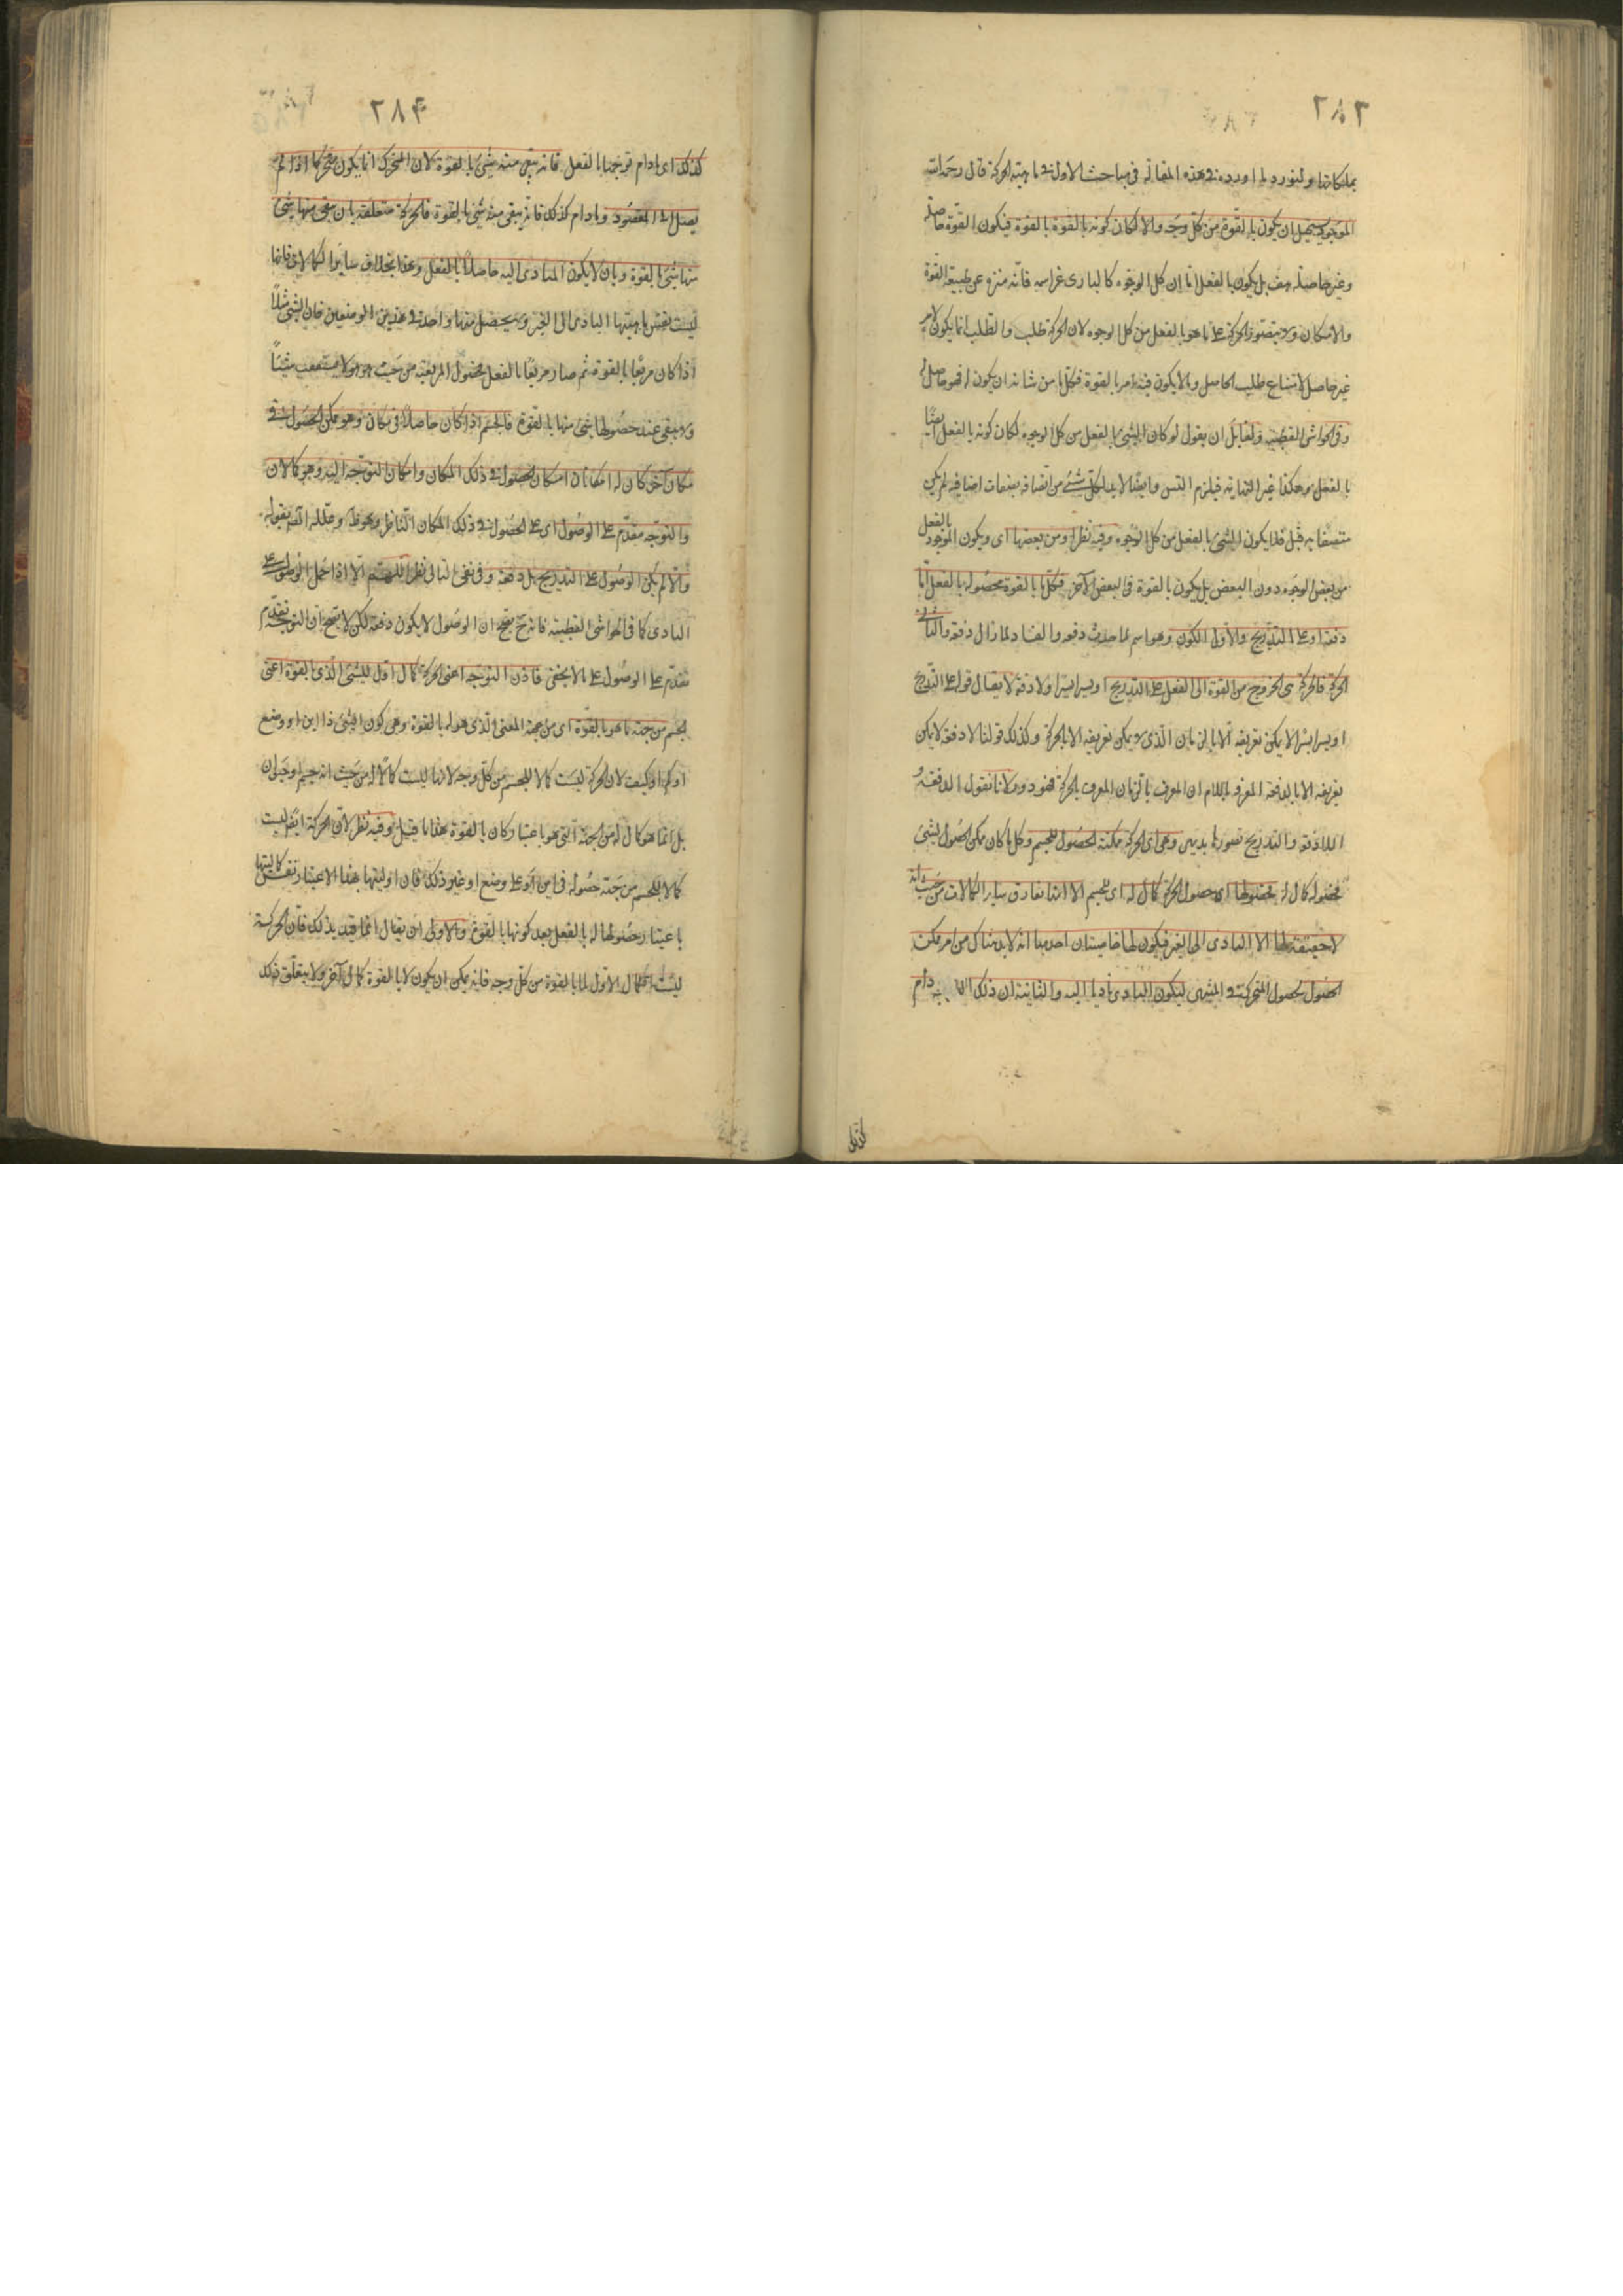 ٢٨٣
بملكاتها ولنورد ما اورده فى هذه المقالة فى مباحث الاول فى ماهية الحركة قال رحمه الله
الموجود يستحيل ان يكون بالقوة من كل وجه والا لكان كونه بالقوة بالقوة فيكون القوة حاصلة
وغير حاصلة هف بل يكون بالفعل اما من كل الوجوه كالبارى عز اسمه فانه منزه عن طبيعة القوة
والامكان ولا يتصور الحركة على ما هو بالفعل من كل الوجوه لان الحركة طلب والطلب انما يكون لامر
غير حاصل لامتناع طلب الحاصل وما لا يكون فيه امر بالقوة فكل ما من شانه ان يكون له فهو حاصل له
وفى الحواشى القطبية ولقائل ان يقول لو كان الشئ بالفعل من كل الوجوه لكان كونه بالفعل ايضا
بالفعل وهكذا الى غير النهاية فيلزم التس وايضا لابد لكل شئ من اتصافه بصفات اضافية لم يكن
متصفا به قبل فلا يكون الشئ بالفعل من كل الوجوه وفيه نظر ومن بعضها اى ويكون الموجود بالفعل
من بعض الوجوه دون البعض بل يكون بالقوة فى البعض الآخر فكل ما بالقوة بحصوله بالفعل اما
دفعة او على التدريج والاول الكون وهو اسم لما حدث دفعة والفساد لما زال دفعة والثانى
الحركة فالحركة هى الخروج من القوة الى الفعل على التدريج او يسيرا يسيرا او لا دفعة لا يقال قوله على التدريج
او يسيرا يسيرا لا يمكن تعريفه الا بالزمان الذى لا يمكن تعريفه الا بالحركة وكذلك قولنا لا دفعة لا يمكن
تعريفه الا بالدفعة المعرفة بالآن المعرف بالزمان المعرف بالحركة فهو دور لانا نقول الدفعة و
اللادفعة والتدريج تصورها بديهى وهى اى الحركة ممكنة الحصول للجسم وكل ما كان ممكن الحصول لشئ
فحصوله كمال له فحصولها اى حصول الحركة كمال له اى للجسم الا انها تفارق سائر الكمالات من حيث انه
لا حقيقة لها الا التادى الى الغير فيكون لها خاصيتان احديهما انه لابد هناك من امر ممكن
الحصول لحصول المتحرك فى المنتهى ليكون التادى تاديا اليه والثانية ان ذلك دام
٢٨٤
كذلك اى ما دام توجها بالفعل فانه يبقى منه شئ بالقوة لان المتحرك انما يكون متحركا اذا لم
يصل الى المقصود وما دام كذلك فانه يبقى منه شئ بالقوة فالحركة متعلقة بان يبقى منها شئ
منها شئ بالقوة وبان لا يكون المتادى اليه حاصلا بالفعل وهذا بخلاف سائر الكمالات فانها
ليست نفس ماهيتها التادى الى الغير ولا يحصل منها واحدة فى هذين الوضعين فان الشئ مثلا
اذا كان مربعا بالقوة ثم صار مربعا بالفعل بحصول المربعية من حيث هو هو لا يستعقب شيئا
ولا يبقى عند حصولها شئ منها بالقوة فالجسم اذا كان حاصلا فى مكان وهو ممكن الحصول فى
مكان آخر كان له امكانان امكان الحصول فى ذلك المكان وامكان التوجه اليه وهو كمالان
والتوجه مقدم على الوصول اى على الحصول فى ذلك المكان وعلله المص بقوله
والا لم يكن الوصول على التدريج بل دفعة وفى نفى التالى نظر اللهم الا اذا حمل الوصول على
التادى كما فى الحواشى القطبية فانه ح يتجه ان الوصول لا يكون دفعة لكن لا يتجه ان التوجه تقدم
متقدم على الوصول على ما لا يخفى فاذن التوجه اعنى الحركة كمال اول للشئ الذى بالقوة اعنى
الجسم من جهة ما هو بالقوة اى من جهة المعنى الذى هو له بالقوة وهى كون الشئ ذا اين او وضع
او كم او كيف لان الحركة ليست كمالا للجسم من كل وجه لانها ليست كمالا له من حيث انه جسم او حيوان
بل انما هو كمال له من الجهة التى هو باعتبار كان بالقوة هذا ما قيل وفيه نظر لان الحركة ايضا ليست
كمالا للجسم من جهة حصوله فى اين او على وضع او غير ذلك فان اوليتها بهذا الاعتبار نفس كماليتها
باعتبار حصولها له بالفعل بعد كونها بالقوة والاولى ان يقال انما قيد بذلك فان الحركة
ليست الكمال الاول لما بالقوة من كل وجه فانه يمكن ان يكون لما بالقوة كمال آخر ولا يتعلق ذلك